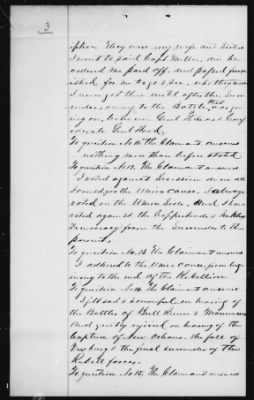 3
ption they were my wife and Sister
I went to said Capt Miller, and he
ordered me paid off, and papers furn
ished for me to go & see, who they were
I never got them until after the Surr
ender, owing to the Battle then now go
ing on, between Genl Thomas & Conf
ederate Genl Hood.
To question No. the Claimant answers
nothing more than before stated
To question No. the Claimant answers
I voted against Secession and
for the Union cause. I always
voted on the Union Side, and I have
voted against the Copperheads &
Democracy from the Surrender to the
present.
To question No. the Claimant answers
I adhered to the Union cause from beg
inning to the end of the Rebellion
To question No. the Claimant answers
I felt sad & sorrowful on hearing of
the Battles of Bull Run & Manassas
and greatly rejoiced on hearing of the
Capture of New Orleans, the fall of
Vicksburg & the final surrender of the
Rebell forces.
To question No. the Claimant answers